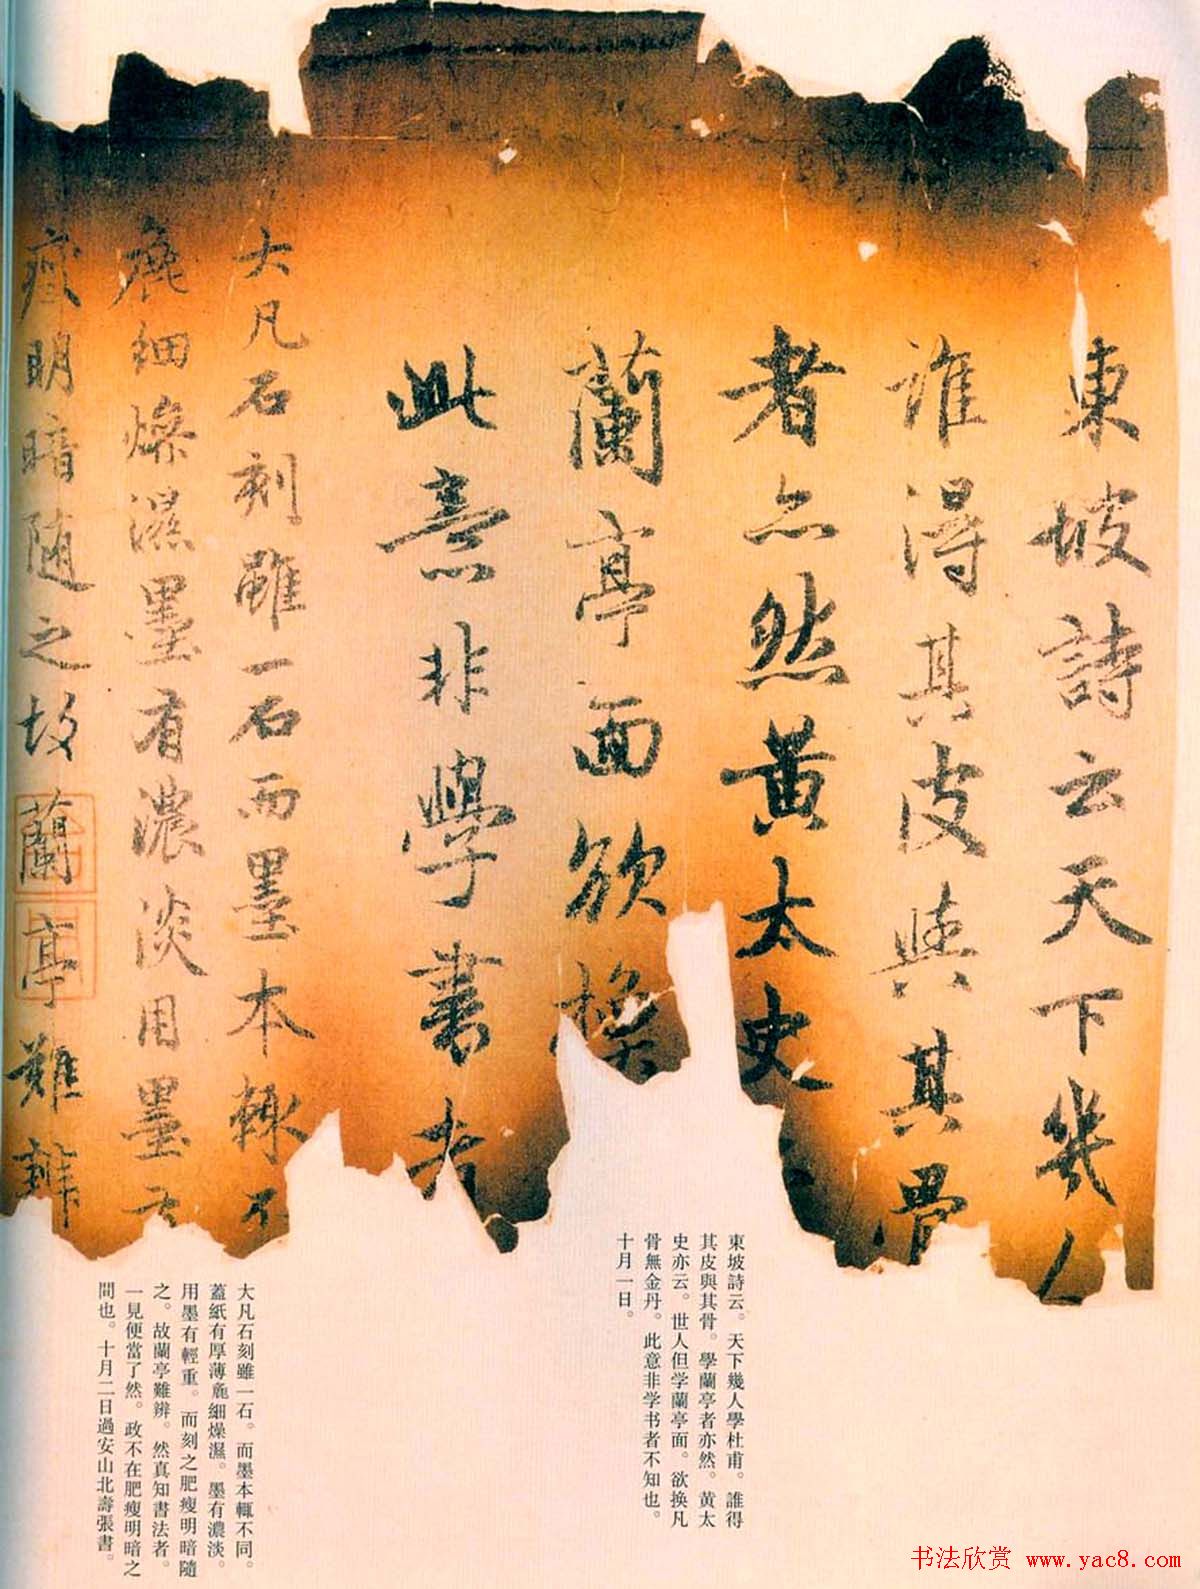 東坡詩云天下幾人
誰得其皮與其骨
者亦然黄太史
蘭亭面欲換
此意非學書者
大凡石刻雖一石而墨本輙不
麁細燥濕墨有濃淡用墨有
瘦明暗随之故蘭亭難辨
東坡詩云。天下幾人學杜甫。誰得
其皮與其骨。學蘭亭者亦然。黄太
史亦云。世人但学蘭亭面。欲换凡
骨無金丹。此意非学书者不知也。
十月一日。
大凡石刻雖一石。而墨本輒不同。
蓋紙有厚薄麁細燥濕。墨有濃淡。
用墨有輕重。而刻之肥瘦明暗隨
之。故蘭亭難辨。然真知書法者。
一見便當了然。政不在肥瘦明暗之
間也。十月二日過安山北壽張書。
书法欣赏 www.yac8.com